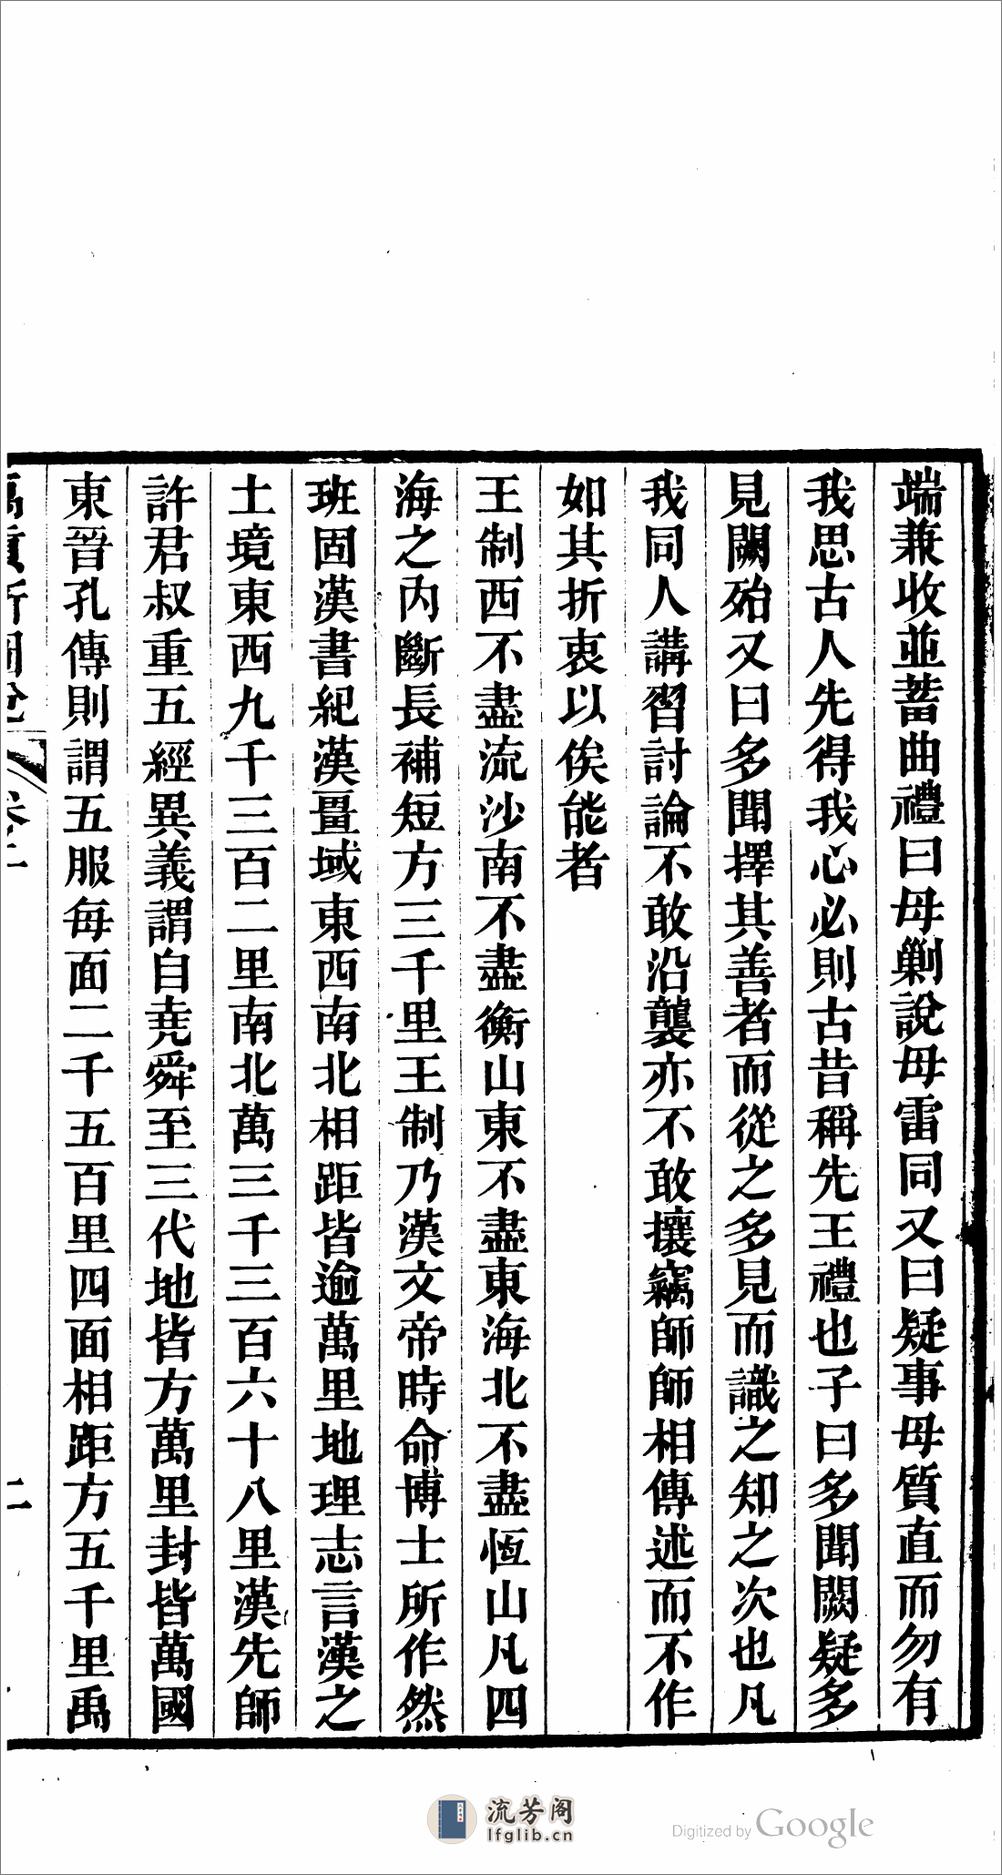 端兼收並蓄曲禮曰毋剿說毋雷同又曰疑事毋質直而勿有
我思古人先得我心必則古昔稱先王禮也子曰多聞闕疑多
見闕殆又曰多聞擇其善者而從之多見而識之知之次也凡
我同人講習討論不敢沿襲亦不敢攘竊師師相傳述而不作
如其折衷以俟能者
王制西不盡流沙南不盡衡山東不盡東海北不盡恆山凡四
海之內斷長補短方三千里王制乃漢文帝時命博士所作然
班固漢書紀漢畺域東西南北相距皆逾萬里地理志言漢之
土境東西九千三百二里南北萬三千三百六十八里漢先師
許君叔重五經異義謂自堯舜至三代地皆方萬里封皆萬國
東晉孔傳則謂五服每面二千五百里四面相距方五千里禹
卷二
二
流芳阁
lfglib.cn
Digitized by Google